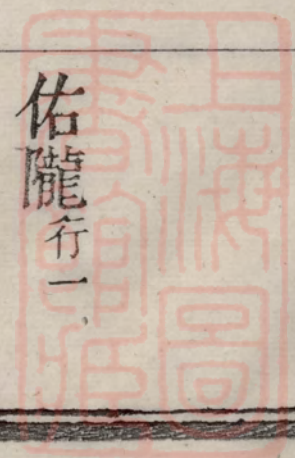 佑隴行一
上海圖書館藏